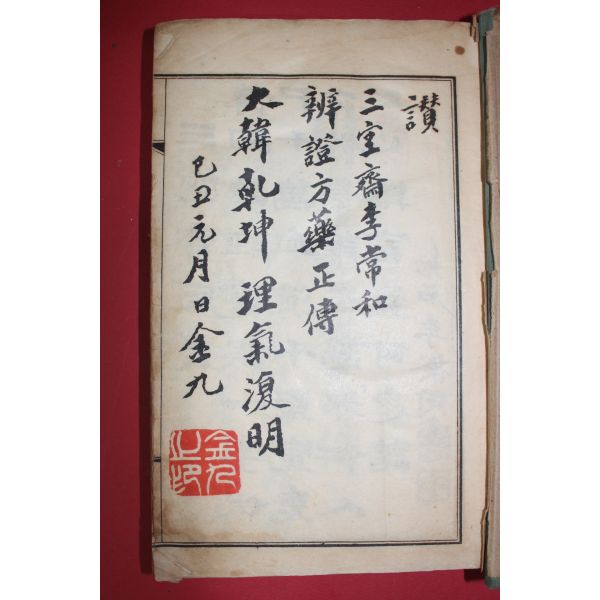 讃
三宝齋李常和
辨證方藥正傳
大韓乾坤理氣復明
己丑元月日金九
金九之印